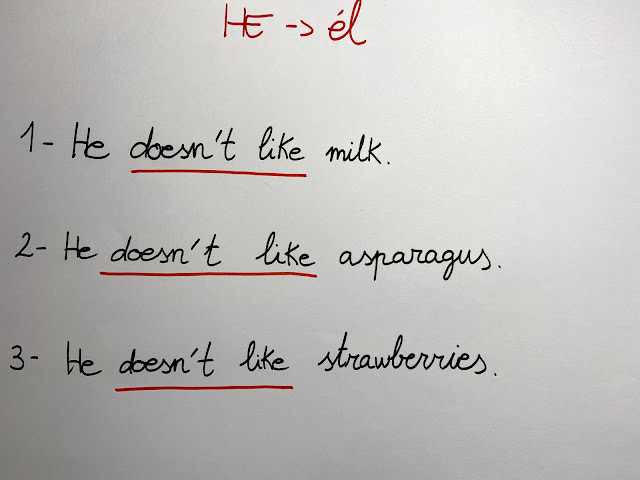 HE -> él
1- He doesn't like milk.
2- He doesn't like asparagus.
3- He doesn't like strawberries.